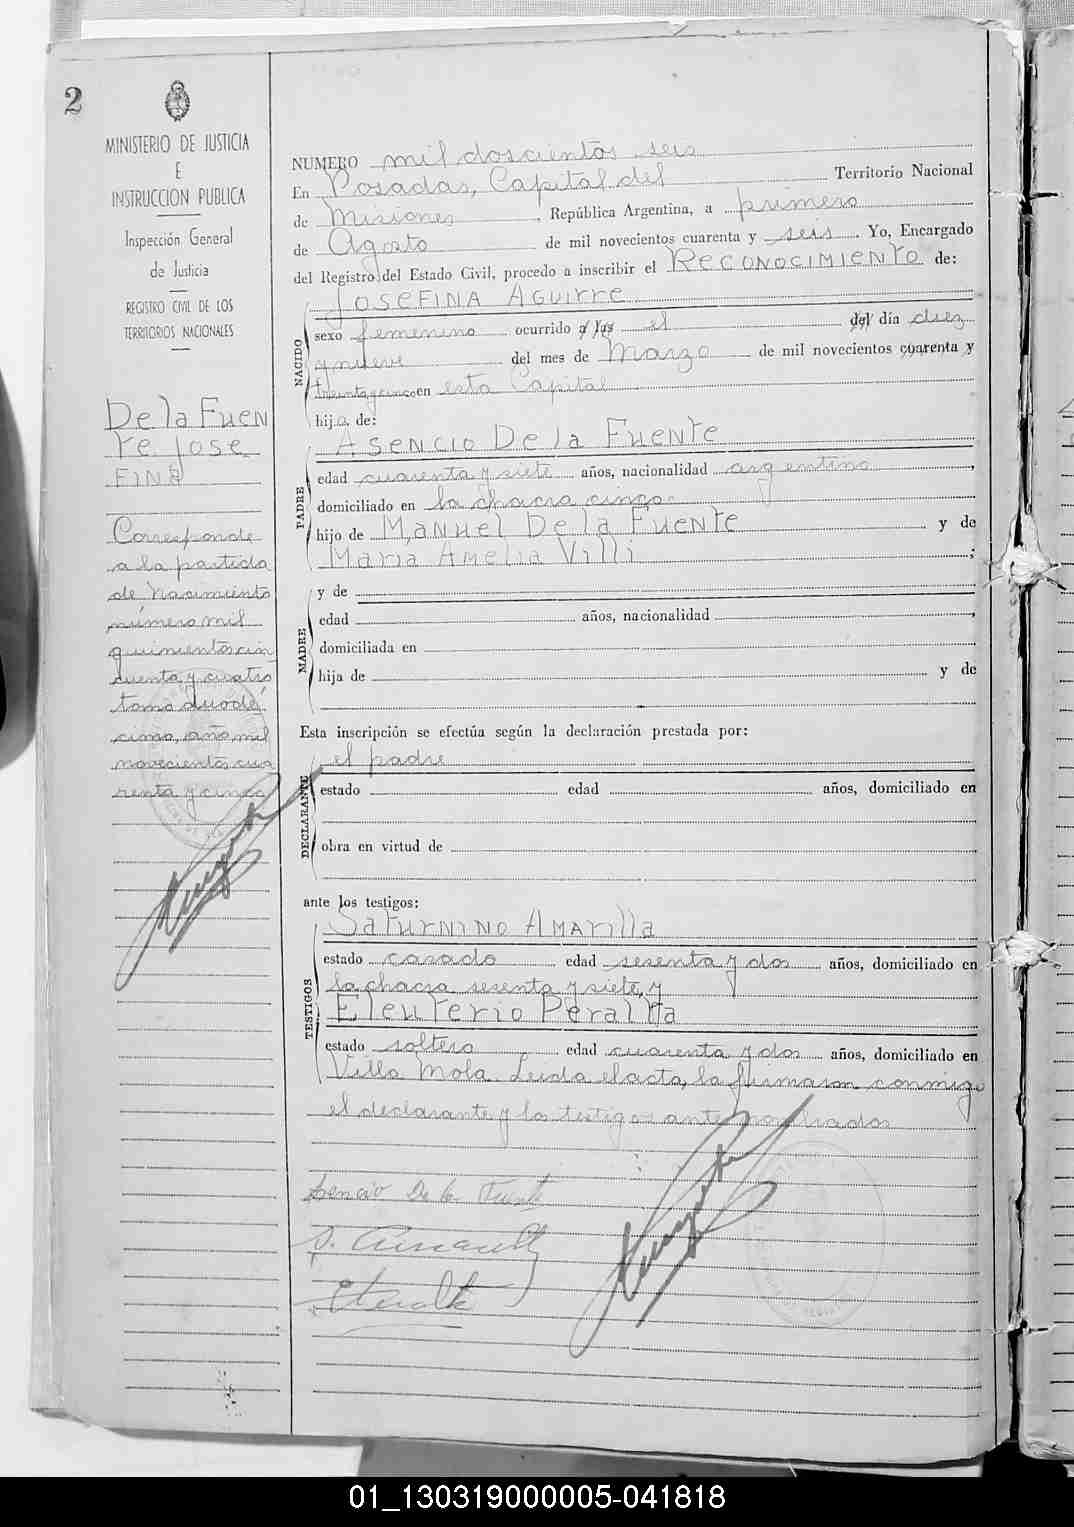 2
MINISTERIO DE JUSTICIA
E
INSTRUCCION PUBLICA
Inspección General
de Justicia
REGISTRO CIVIL DE LOS
TERRITORIOS NACIONALES
De la Fuen
te Jose
fina
Corresponde
a la partida
de nacimiento
número mil
quinientos cin
cuenta y cuatro
tomo duodé
cimo, año mil
novecientos cua
renta y cinco
NUMERO mil doscientos seis
En Posadas, Capital del Territorio Nacional
de Misiones, República Argentina, a primero
de Agosto de mil novecientos cuarenta y seis. Yo, Encargado
del Registro del Estado Civil, procedo a inscribir el Reconocimiento de:
NACIDO
Josefina Aguirre
sexo femenino ocurrido a las el del día diez
y nueve del mes de Marzo de mil novecientos cuarenta y
treinta y cinco en esta Capital
hija de:
PADRE
Asencio De la Fuente
edad cuarenta y siete años, nacionalidad argentino,
domiciliado en la chacra cinco
hijo de Manuel De la Fuente y de
Maria Amelia Villi;
MADRE
y de
edad años, nacionalidad,
domiciliada en
hija de y de
Esta inscripción se efectúa según la declaración prestada por:
DECLARANTE
el padre
estado edad años, domiciliado en
obra en virtud de
ante los testigos:
TESTIGOS
Saturnino Amarilla
estado casado edad sesenta y dos años, domiciliado en
la chacra sesenta y siete, y
Eleuterio Peralta
estado soltero edad cuarenta y dos años, domiciliado en
Villa Mola. Leida el acta, la firmaron conmigo
el declarante y los testigos ante nombrados
Asencio De la Fuente
S. Amarilla
E Peralta
01_130319000005-041818